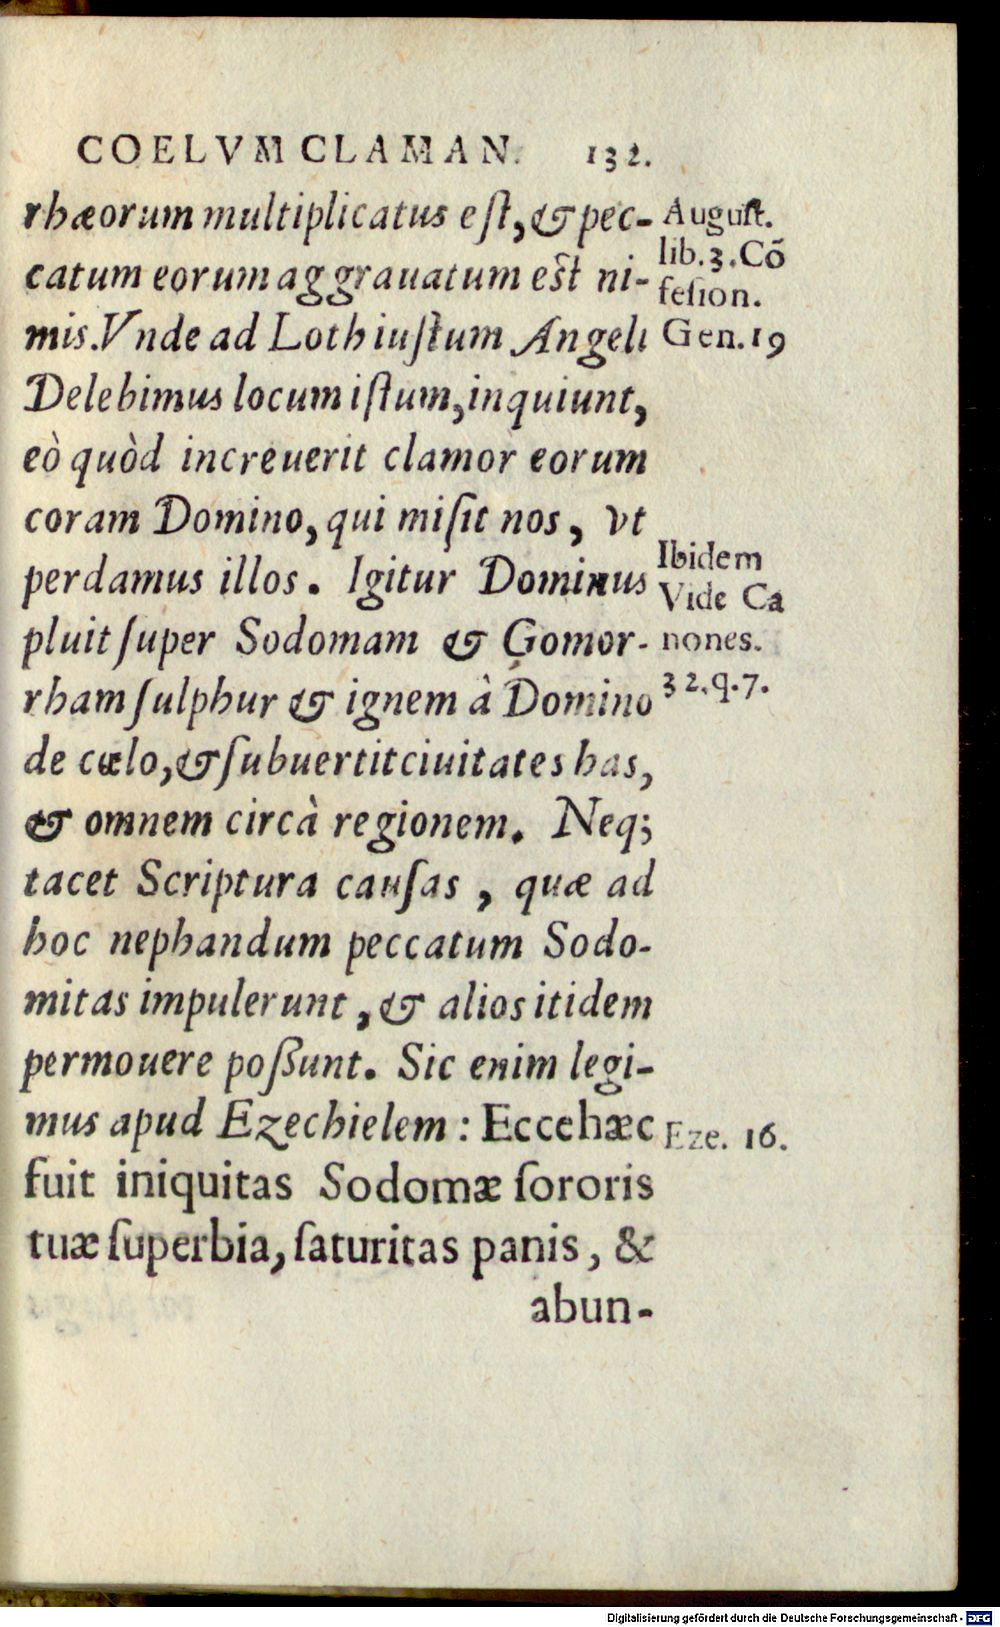 COELVM CLAMAN. 132.
rhæorum multiplicatus eſt, & pec-
catum eorum aggrauatum eſt ni-
mis. Vnde ad Loth iuſtum Angeli
Delebimus locum iſtum, inquiunt,
eò quòd increuerit clamor eorum
coram Domino, qui miſit nos, vt
perdamus illos. Igitur Dominus
pluit ſuper Sodomam & Gomor-
rham ſulphur & ignem à Domino
de cœlo, & ſubuertit ciuitates has,
& omnem circà regionem. Neq;
tacet Scriptura cauſas, quæ ad
hoc nephandum peccatum Sodo-
mitas impulerunt, & alios itidem
permouere poßunt. Sic enim legi-
mus apud Ezechielem: Ecce hæc
fuit iniquitas Sodomæ ſororis
tuæ ſuperbia, ſaturitas panis, &
abun-
Auguſt.
lib. 3. Cõ
feſion.
Gen. 19
Ibidem
Vide Ca
nones.
32. q. 7.
Eze. 16.
Digitalisierung gefördert durch die Deutsche Forschungsgemeinschaft - DFG